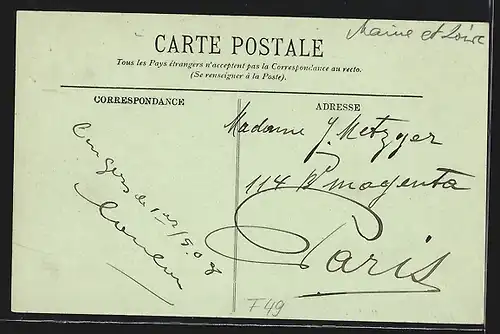 Maine et Loire
CARTE POSTALE
Tous les Pays étrangers n'acceptent pas la Correspondance au recto.
(Se renseigner à la Poste).
CORRESPONDANCE
Angers le 1er/5.08
ADRESSE
Madame J. Metzger
114 Bd magenta
Paris
F49